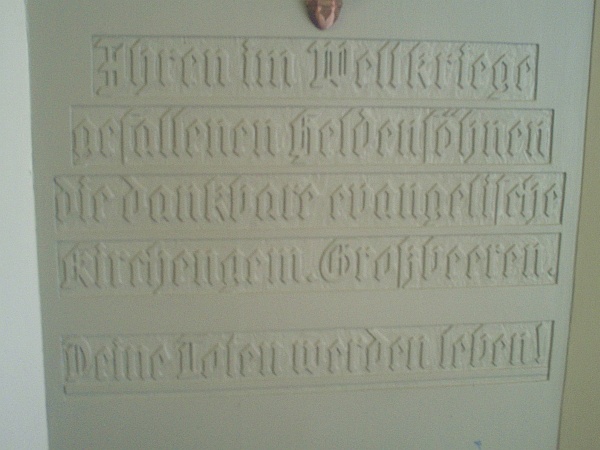 Ihren im Weltkriege
gefallenen Heldensöhnen
die dankbare evangelische
Kirchengem. Großbeeren.
Deine Toten werden leben!